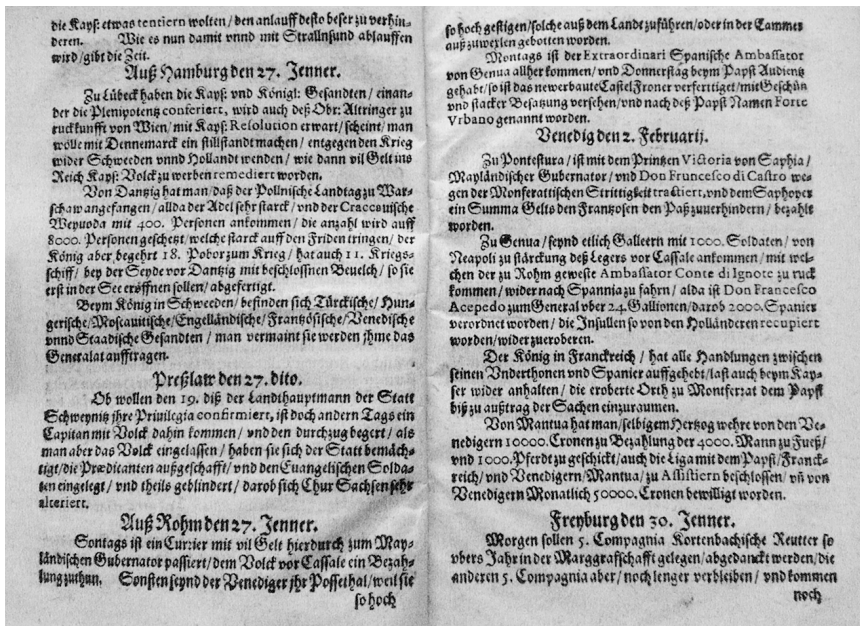 die Kays: etwas tentiern wolten / den anlauff desto beser zu verhin-
deren. Wie es nun damit vnnd mit Strallnsund ablauffen
wird / gibt die Zeit.
Auß Hamburg den 27. Jenner.
Zu Lübeck haben die Kays: vnd Königl: Gesandten / einan-
der die Plenipotentz conferiert, wird auch deß Obr: Altringer zu
ruckkunfft von Wien / mit Kays: Resolution erwart / scheint / man
wölle mit Dennemarck ein stillstandt machen / entgegen den Krieg
wider Schweeden vnnd Hollandt wenden / wie dann vil Gelt ins
Reich Kays: Volck zu werben remediert worden.
Von Dantzig hat man / daß der Pollnische Landtag zu War-
schaw angefangen / allda der Adel sehr starck / vnd der Craccouische
Weyuoda mit 400. Personen ankommen / die anzahl wird auff
8000. Personen geschetzt / welche starck auff den Friden tringen / der
König aber begehrt 18. Pobor zum Krieg / hat auch 11. Kriegs-
schiff / bey der Seyde vor Dantzig mit beschlossnen Beuelch / so sie
erst in der See eröffnen sollen / abgefertigt.
Beym König in Schweeden / befinden sich Türckische / Hun-
gerische / Moscauitische / Engelländische / Frantzösische / Venedische
vnnd Staadische Gesandten / man vermaint sie werden jhme das
Generalat aufftragen.
Preßlaw den 27. dito.
Ob wollen den 19. diß der Landthauptmann der Statt
Schweynitz jhre Priuilegia confirmiert, ist doch andern Tags ein
Capitan mit Volck dahin kommen / vnd den durchzug begert / als
man aber das Volck eingelassen / haben sie sich der Statt bemäch-
tigt / die Prædicanten außgeschafft / vnd den Euangelischen Solda-
ten eingelegt / vnd theils geblindert / darob sich Chur Sachsen sehr
alteriert.
Auß Rohm den 27. Jenner.
Sontags ist ein Currier mit vil Gelt hierdurch zum May-
ländischen Gubernator passiert / dem Volck vor Cassale ein Bezah-
lung zuthun. Sonsten seynd der Venediger jhr Posses hal / weil sie
so hoch
so hoch gestigen / solche auß dem Lande zuführen / oder in der Cammer
auß zuwexlen gebotten worden.
Montags ist der Extraordinari Spanische Ambassator
von Genua allher kommen / vnd Donnerstag beym Papst Audientz
gehabt / so ist das newerbaute Castel Froner verfertiget / mit Geschütz
vnd stacker Besatzung versehen / vnd nach deß Papst Namen Forte
Vrbano genannt worden.
Venedig den 2. Februarij.
Zu Pontestura / ist mit dem Printzen Victoria von Saphia /
Mayländischer Gubernator / vnd Don Fruncesco di Castro we-
gen der Monferattischen Strittigkeit tractiert, vnd dem Saphoyer
ein Summa Gelts den Frantzosen den Paß zuuerhindern / bezahlt
worden.
Zu Genua / seynd etlich Galleern mit 1000. Soldaten / von
Neapoli zu stärckung deß Legers vor Cassale ankommen / mit wel-
chen der zu Rohm geweste Ambassator Conte di Ignote zu ruck
kommen / wider nach Spannia zu fahrn / alda ist Don Francesco
Acepedo zum General vber 24. Gallionen / darob 2000. Spanier
verordnet worden / die Insullen so von den Holländeren recupiert
worden / wider zueroberen.
Der König in Franckreich / hat alle Handlungen zwischen
seinen Vnderthonen vnd Spanier auffgehebt / last auch beym Kay-
ser wider anhalten / die eroberte Orth zu Montferrat dem Papst
biß zu außtrag der Sachen einzuraumen.
Von Mantua hat man / selbigem Hertzog wehre von den Ve-
nedigern 10000. Cronen zu Bezahlung der 4000. Mann zu Fueß /
vnd 1000. Pferdt zu geschickt / auch die Liga mit dem Papst / Franck-
reich / vnd Venedigern / Mantua / zu Assistiern beschlossen / vn̄ von
Venedigern Monatlich 50000. Cronen bewilligt worden.
Freyburg den 30. Jenner.
Morgen sollen 5. Compagnia Kortenbachische Reutter so
vbers Jahr in der Marggraffschafft gelegen / abgedanckt werden / die
anderen 5. Compagnia aber / noch lenger verbleiben / vnd kommen
noch